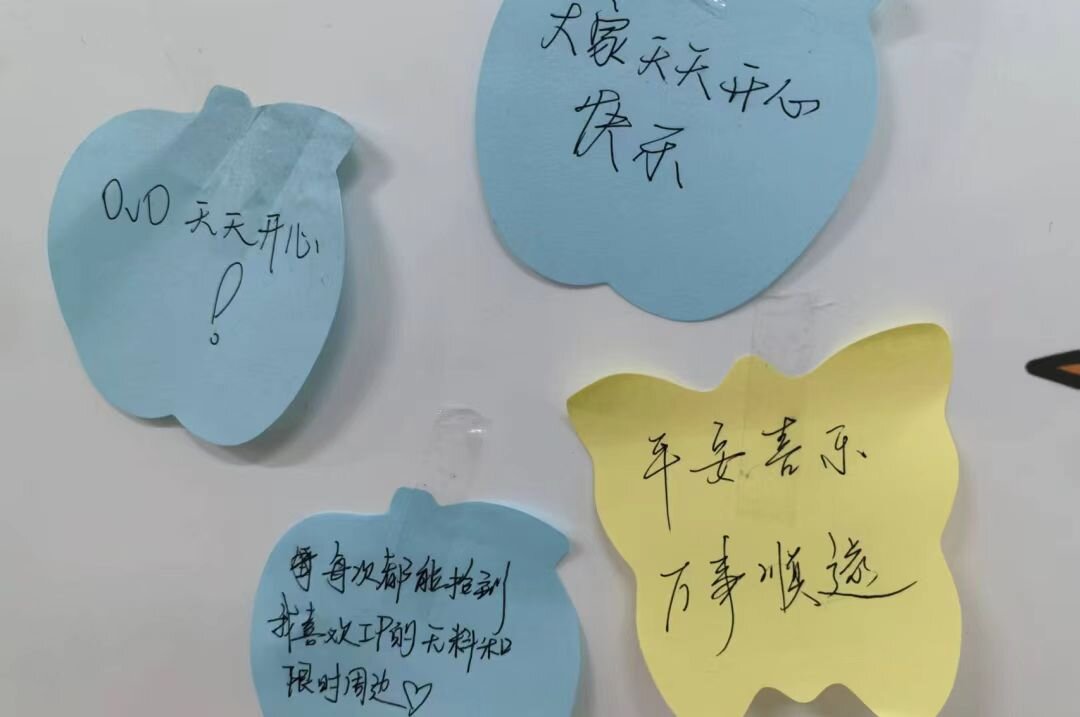 OvO 天天开心
!
大家天天开心
快乐
每次都能抢到
我喜欢IP的无料和
限时周边♡
平安喜乐
万事顺遂